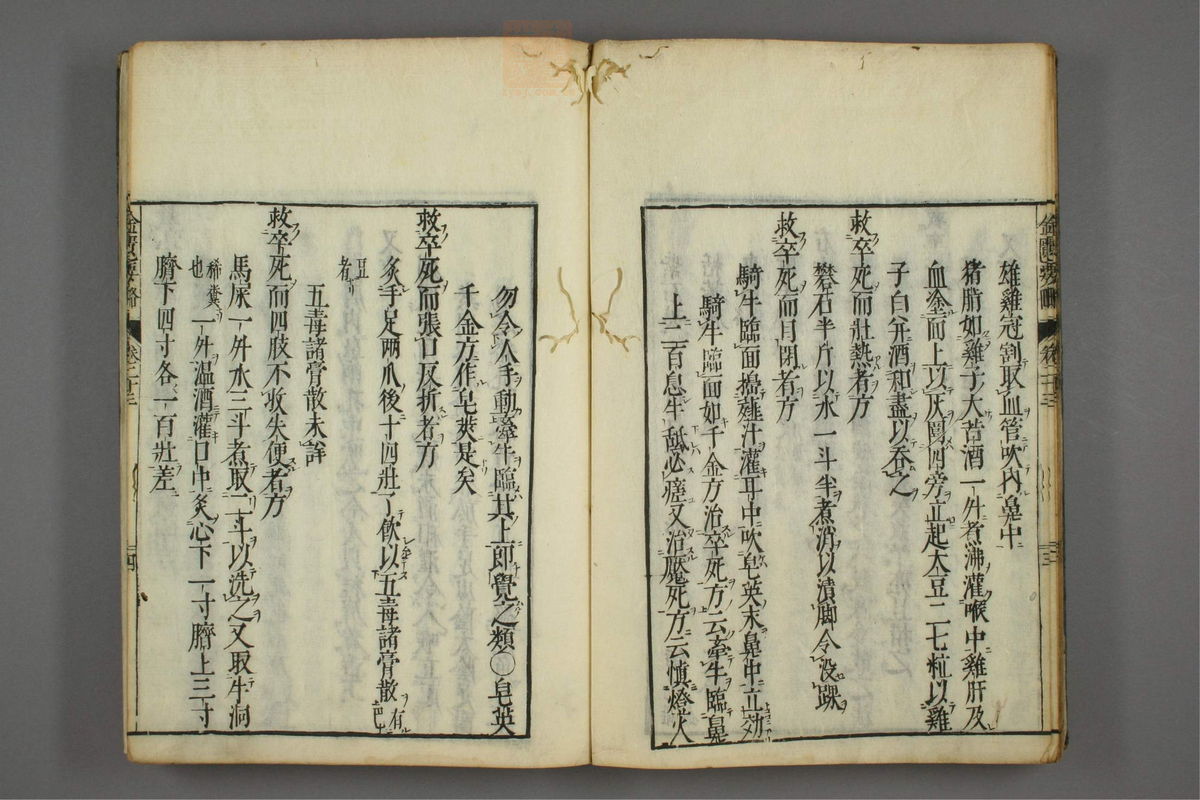 雄雞冠割取血管吹內鼻中
猪脂如雞子大苦酒一升煮沸灌喉中雞肝及
血塗面上以灰圍四旁立起大豆二七粒以雞
子白并酒和盡以吞之
救卒死而壯熱者方
礬石半斤以水一斗半煮消以漬脚令沒踝
救卒死而目閉者方
騎牛臨面搗薤汁灌耳中吹皂莢末鼻中立効
騎牛臨面如千金方治卒死方云牽牛臨鼻
上二百息牛舐必瘥又治魘死方云慎燈火
勿令人手動牽牛臨其上即覺之類〇皂莢
千金方作皂莢是矣
救卒死而張口反折者方
灸手足兩爪後十四壯了飲以五毒諸膏散有巴
豆者
五毒諸膏散未詳
救卒死而四肢不收失便者方
馬屎一升水三斗煮取二斗以洗之又取牛洞
稀糞也一升温酒灌口中灸心下一寸臍上三寸
臍下四寸各一百壯差